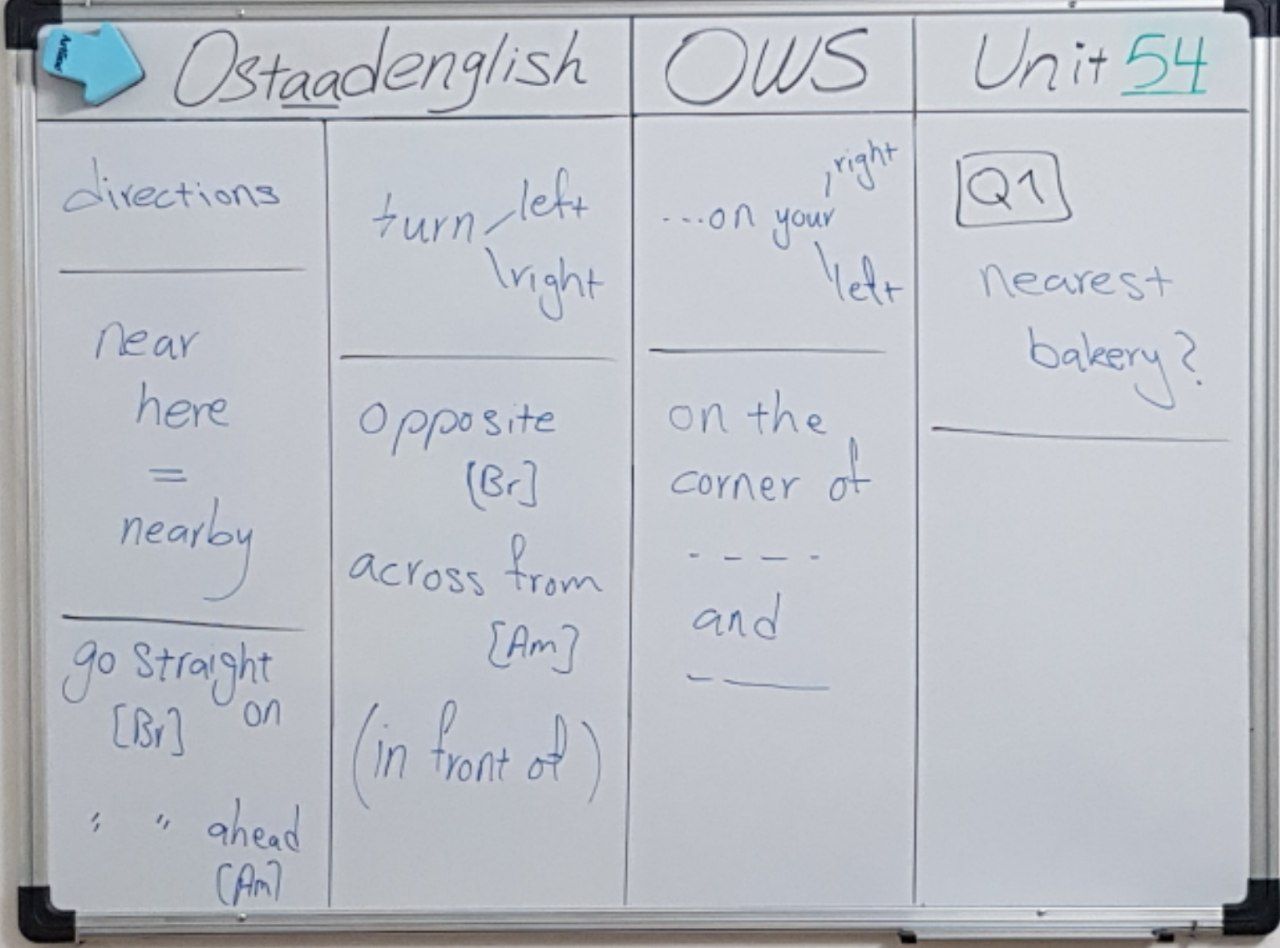 Ostaadenglish
OWS
Unit 54
directions
near
here
=
nearby
go straight
on
[Br]
" " ahead
[Am]
turn left
right
opposite
[Br]
across from
[Am]
(in front of)
...on your right
left
on the
corner of
- - - -
and
- —
Q1
nearest
bakery?